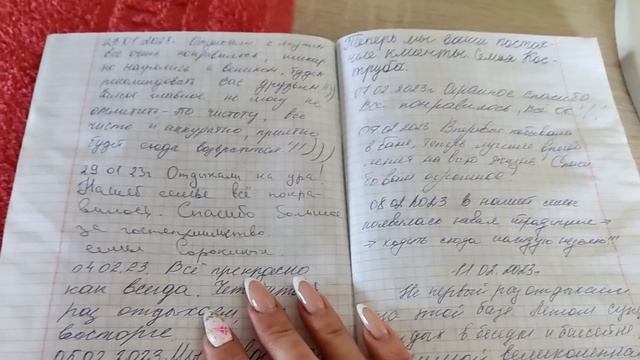 29.01.2023. Отдыхали с мужем
все очень понравилось,
не и веником. Будем
рекомендовать Вас друзьям!
самое главное не могу не
отметить - это чистоту, все
чисто и аккуратно, приятно
будет сюда возвратиться!!!)))
29.01.23г Отдыхали на ура!
Нашей семье всё понра-
вилось. Спасибо большое
за гостеприимство.
семья Сорокины
04.02.23. Всё прекрасно
как всегда.
раз отдыхаем
восторге.
05.02.2023
Теперь мы ваши постоян-
ные клиенты Семья Кос-
труба.
07.02.2023г Огромное спасибо
Всё понравилось, Всё ок!!!
07.02.2023 Впервые побывали
в бане, теперь лучшие впечат-
ления на всю жизнь! Спаси-
бо Вам огромное!
08.02.2023 В нашей семье
появилась новая традиция →
→ ходить сюда каждую неделю!!!
11.02.2023г
Не первый раз отдыхаем
на этой базе. Летом
в беседке и бассейне